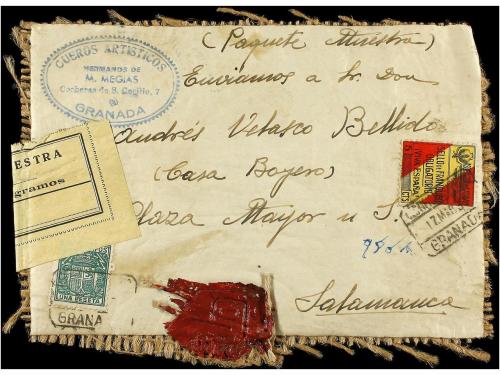 CUEROS ARTISTICOS
HERMANOS DE
M. MEGIAS
GRANADA
(Paquete Muestra)
Enviamos a Sr. Don
Andrés Velasco Bellido
(Casa Boyero)
Plaza Mayor
Salamanca
ESTRA
gramos
SELLO DE FRANQUEO
OBLIGATORIO
¡VIVA ESPAÑA!
5 CTS
GRANADA
UNA PESETA
GRANA